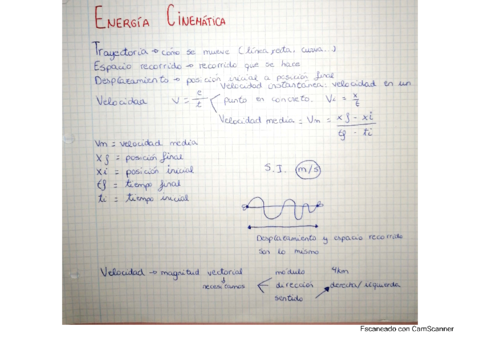 ENERGÍA CINEMÁTICA
Trayectoria → cómo se mueve (línea recta, curva...)
Espacio recorrido → recorrido que se hace
Desplazamiento → posición inicial a posición final
Velocidad V = e/t
Velocidad instantánea: velocidad en un
punto en concreto. Vi = x/t
Velocidad media = Vm = xf - xi / tf - ti
Vm = velocidad media
xf = posición final
xi = posición inicial
tf = tiempo final
ti = tiempo inicial
S.I. m/s
Desplazamiento y espacio recorrido
son lo mismo
Velocidad → magnitud vectorial
necesitamos
módulo 4km
dirección
sentido
derecha/izquierda
Escaneado con CamScanner